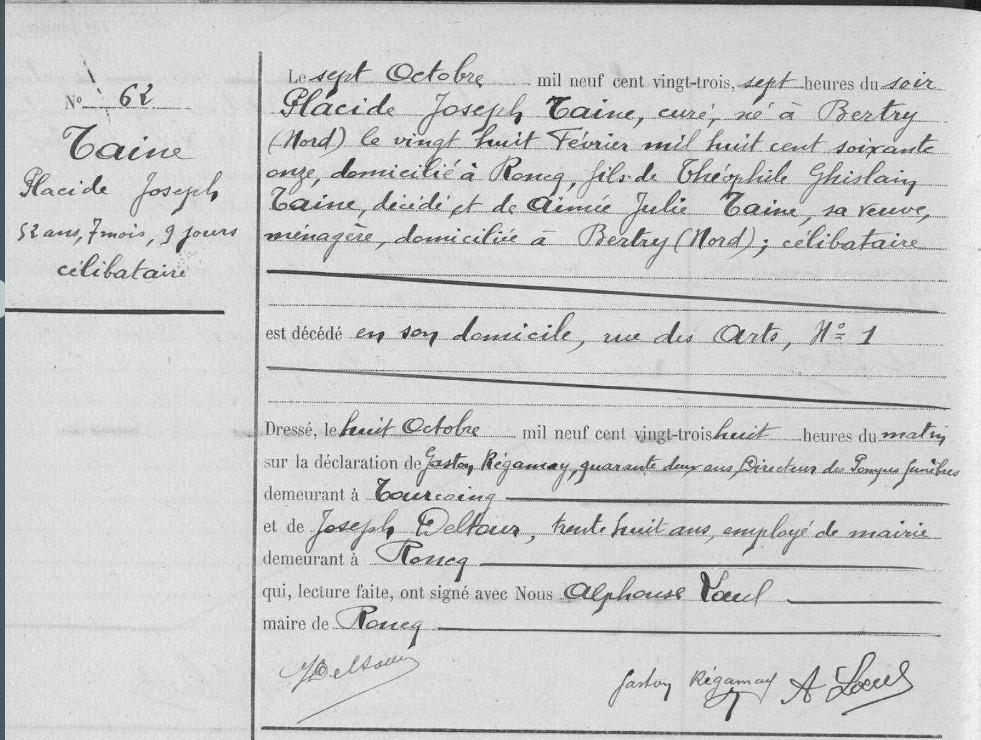 N° 62
Taine
Placide Joseph
52 ans, 7 mois, 9 jours
célibataire
Le sept Octobre mil neuf cent vingt-trois, sept heures du soir
Placide Joseph Taine, curé, né à Bertry
(Nord) le vingt huit Février mil huit cent soixante
onze, domicilié à Roncq, fils de Théophile Ghislain
Taine, décédé et de Aimée Julie Taine, sa veuve,
ménagère, domiciliée à Bertry (Nord) ; célibataire
est décédé en son domicile, rue des Arts, N° 1
Dressé, le huit Octobre mil neuf cent vingt-trois huit heures du matin
sur la déclaration de Gaston Régamay, quarante deux ans, Directeur des Pompes funèbres
demeurant à Tourcoing
et de Joseph Deltour, trente huit ans, employé de mairie
demeurant à Roncq
qui, lecture faite, ont signé avec Nous Alphonse
maire de Roncq
JDeltour
Gaston Régamay A